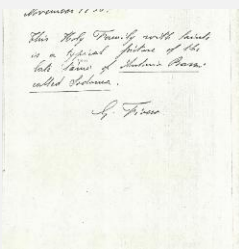 This Holy Family with saints
is a typical picture of the
late time of Antonio Bazzi
called Sodoma.
G. Fiocco